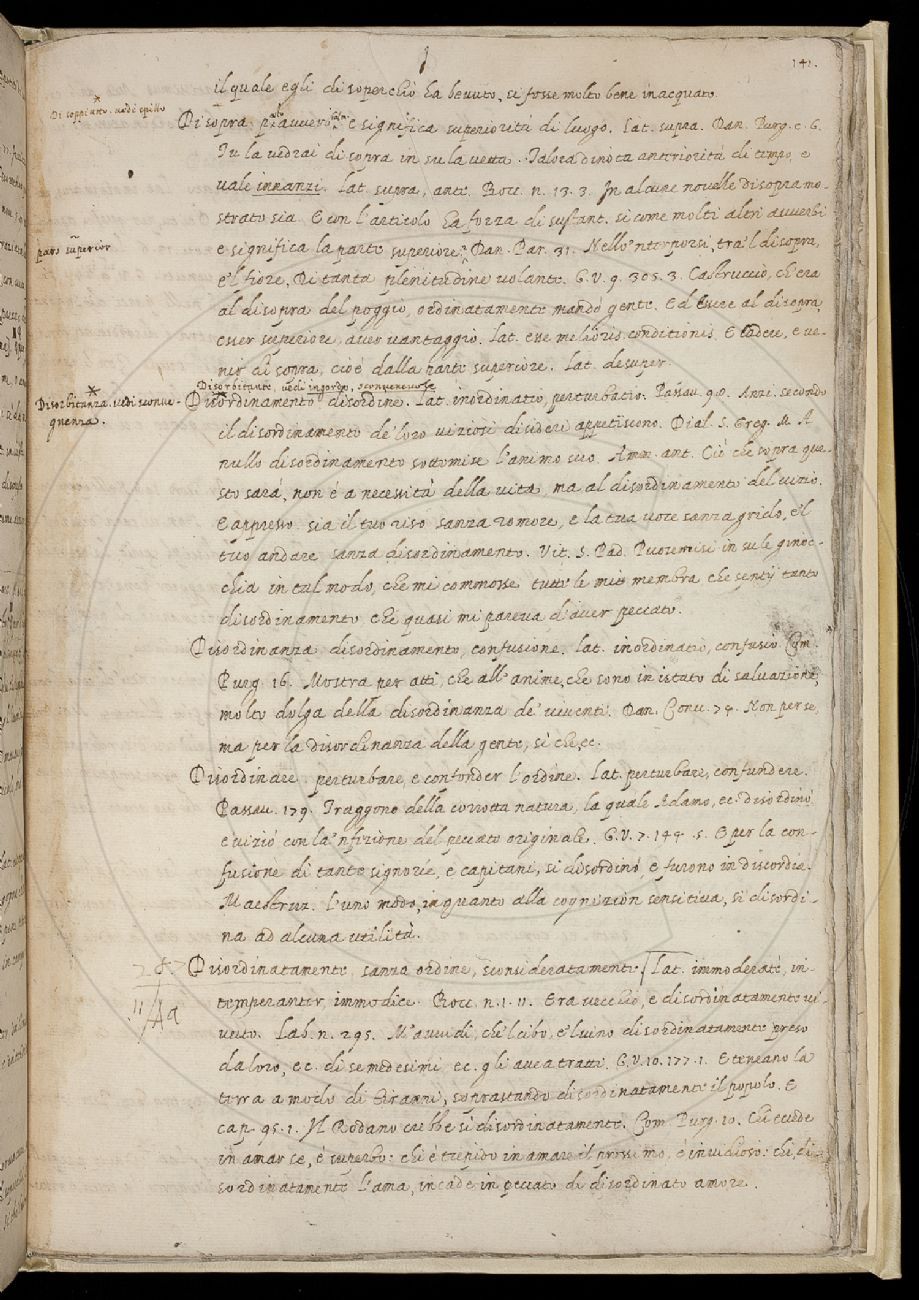 141.
il quale egli di soperchio ha bevuto, si fosse molto bene inacquato.
Di soppiatto. vedi
Di sopra avverbio e significa superiorità di luogo. Lat. supra. Dan. Purg. c. 6.
Tu la vedrai di sopra in su la vetta. Talora dinota anteriorità di tempo, e
vale innanzi. Lat. supra, ante. Bocc. n. 13. 3. In alcune novelle di sopra mo-
strato sia. E con l'articolo ha forza di sustant. si come molti altri avverbi
pars superior
e significa la parte superiore. Dan. Par. 31. Nello 'nterporsi, tra 'l disopra,
e 'l fiore, Di tanta plenitudine volante. G. V. 9. 305. 3. Castruccio, ch'era
al disopra del poggio, ordinatamente mandò gente. Ed essere al disopra,
esser superiore, aver vantaggio. Lat. esse melioris conditionis. E cadere, e ve-
nir di sopra, cioè dalla parte superiore. Lat. desuper
Disorbitante, vedi ingordo, sconvenevole
Disorbitanza. vedi sconve-
guenza.
Disordinamento disordine. Lat. inordinatio, perturbatio. Passav. 90. Anzi secondo
il disordinamento de' loro viziosi disideri appetiscono. Dial. S. Greg. M. A
nullo disordinamento sottomise l'animo suo. Amm. ant. Ciò che sopra que-
sto sarà, non è a necessità della vita, ma al disordinamento del vizio.
E appresso. sia il tuo riso sanza romore, e la tua voce sanza grido, e 'l
tuo andare sanza disordinamento. Vit. S. Pad. Puosemisi in su le ginoc-
chia in tal modo, che mi commosse tutte le mie membra che sentij tanto
disordinamento che quasi mi pareva d'aver peccato.
Disordinanza disordinamento, confusione. Lat. inordinatio, confusio. Com.
Purg. 16. Mostra per atti, che all'anime, che sono in istato di salvazione,
molto dolga della disordinanza de' viventi. Dan. Conv. 74. Non per se,
ma per la disordinanza della gente, sì che, ec.
Disordinare. perturbare, e confonder l'ordine. Lat. perturbare, confundere.
Passav. 179. Traggono della corrotta natura, la quale Adamo, ec. disordinò,
e viziò con la 'nfezione del peccato originale. G. V. 7. 144. 5. E per la con-
fusione di tante signorie, e capitani, si disordinò, e furono in discordia.
Maestruz. L'uno modo, in quanto alla cognizion sensitiva, si disordi-
na ad alcuna utilità.
Disordinatamente, sanza ordine, sconsideratamente. Lat. immoderatè, in-
temperanter, immodice. Bocc. n. 1. 11. Era vecchio, e disordinatamente vi-
vuto. Lab. n. 295. M'avvidi, che 'l cibo, e 'l vino disordinatamente preso
da loro, ec. di se medesimi ec. gli avea tratti. G. V. 10. 177. 1. E teneano la
terra a modo di tiranni, soprastando disordinatamente il popolo. E
cap. 95. 1. Il Rodano crebbe sì disordinatamente. Com. Purg. 10. Chi eccede
in amar se, è superbo: chi è trepido in amare il prossimo, è invidioso: chi di-
sordinatamente l'ama, incade in peccato di disordinato amore.